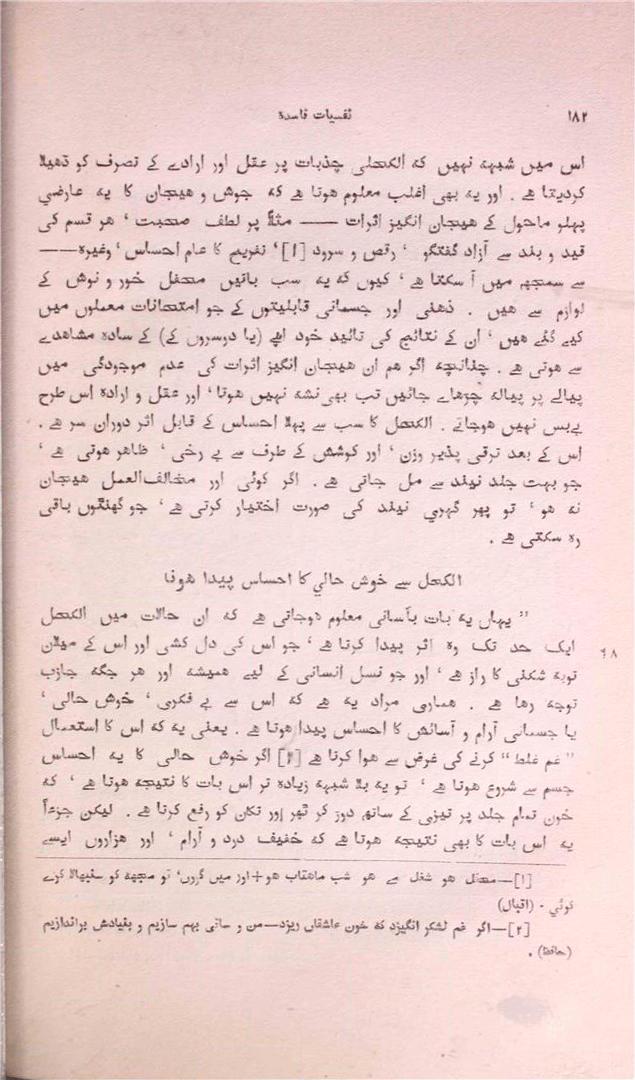 ۱۸۲
نفسیات فاسدہ
اس میں شبہہ نہیں کہ الکحلی جذبات پر عقل اور ارادے کے تصرف کو ڈھیلا
کردیتا ہے . اور یہ بھی اغلب معلوم ہوتا ہے کہ جوش و ہیجان کا یہ عارضي
پہلو ماحول کے ہیجان انگیز اثرات —— مثلاً پر لطف صحبت ' ہر قسم کی
قید و بند سے آزاد گفتگو ' رقص و سرود [۱] ' تفریح کا عام احساس ' وغیرہ——
سے سمجھ میں آ سکتا ہے ' کیوں کہ یہ سب باتیں محفل خور و نوش کے
لوازم سے ہیں . ذہنی اور جسمانی قابلیتوں کے جو امتحانات معملوں میں
کیے گئے ہیں ' ان کے نتائج کی تائید خود اپنے (یا دوسروں کے) کے سادہ مشاہدے
سے ہوتی ہے . چنانچہ اگر ہم ان ہیجان انگیز اثرات کی عدم موجودگی میں
پیالے پر پیالہ چڑھاے جائیں تب بھی نشہ نہیں ہوتا ' اور عقل و ارادہ اس طرح
بےبس نہیں ہوجاتے . الکحل کا سب سے پہلا احساس کے قابل اثر دوران سر ہے .
اس کے بعد ترقی پذیر وزن ' اور کوشش کے طرف سے بے رخی ' ظاہر ہوتی ہے '
جو بہت جلد نیند سے مل جاتی ہے . اگر کوئی اور مخالف‌العمل ہیجان
نہ ہو ' تو پھر گہری نیند کی صورت اختیار کرتی ہے ' جو گھنٹوں باقی
رہ سکتی ہے .
الکحل سے خوش حالي کا احساس پیدا ہونا
" یہاں یہ بات بآسانی معلوم ہوجاتی ہے کہ ان حالات میں الکحل
ایک حد تک وہ اثر پیدا کرتا ہے ' جو اس کی دل کشی اور اس کے میلان
توبہ شکنی کا راز ہے ' اور جو نسل انسانی کے لیے ہمیشہ اور ہر جگہ جازب
توجہ رہا ہے . ہماری مراد یہ ہے کہ اس سے بے فکری ' خوش حالی '
یا جسمانی آرام و آسائش کا احساس پیدا ہوتا ہے . یعنی یہ کہ اس کا استعمال
"غم غلط" کرنے کی غرض سے ہوا کرتا ہے [۲] اگر خوش حالی کا یہ احساس
جسم سے شروع ہوتا ہے ' تو یہ بلا شبہہ زیادہ تر اس بات کا نتیجہ ہوتا ہے ' کہ
خون تمام جلد پر تیزی کے ساتھ دوڑ کر ٹھر اور تکان کو رفع کرتا ہے . لیکن جزءاً
یہ اس بات کا بھی نتیجہ ہوتا ہے کہ خفیف درد و آرام ' اور ہزاروں ایسے
[۱]—محفل ہو شغل مے ہو شب ماہتاب ہو + اور میں گروں' تو مجھہ کو سنبھالا کرے
کوئي - (اقبال)
[۲]—اگر غم لشکر انگیزد کہ خون عاشقاں ریزد—من و ساقی بہم سازیم و بنیادش براندازیم
(حافظ) .